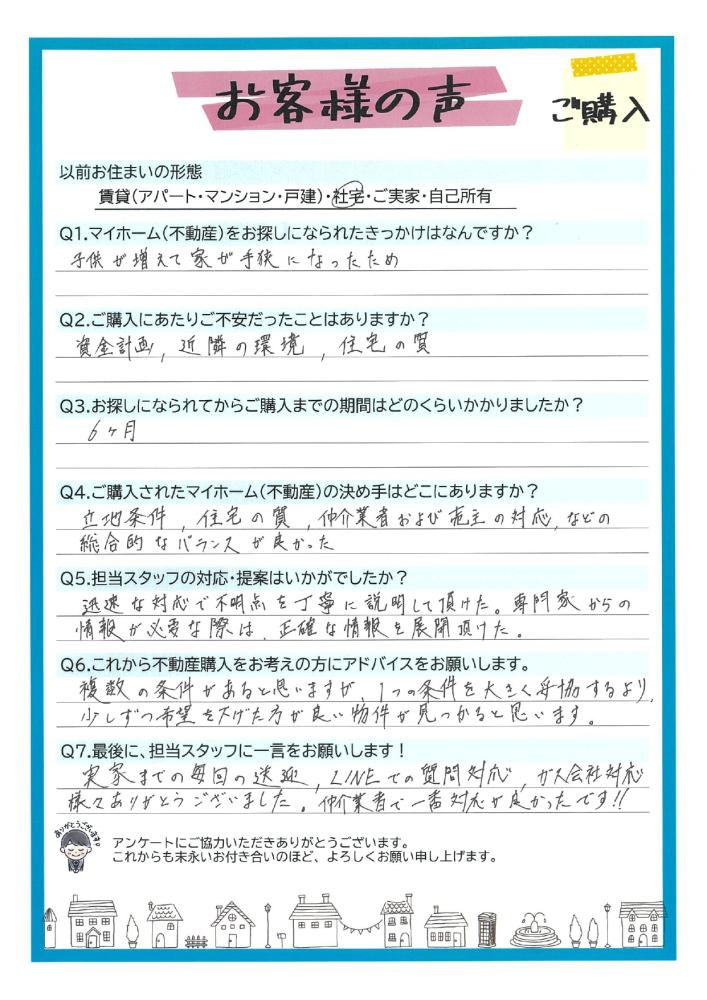 お客様の声
ご購入
以前お住まいの形態
賃貸(アパート・マンション・戸建)・社宅・ご実家・自己所有
Q1.マイホーム(不動産)をお探しになられたきっかけはなんですか?
子供が増えて家が手狭になったため
Q2.ご購入にあたりご不安だったことはありますか?
資金計画, 近隣の環境, 住宅の質
Q3.お探しになられてからご購入までの期間はどのくらいかかりましたか?
6ヶ月
Q4.ご購入されたマイホーム(不動産)の決め手はどこにありますか?
立地条件, 住宅の質, 仲介業者および売主の対応, などの
総合的なバランスが良かった
Q5.担当スタッフの対応・提案はいかがでしたか?
迅速な対応で不明点を丁寧に説明して頂けた。専門家からの
情報が必要な際は, 正確な情報を展開頂けた。
Q6.これから不動産購入をお考えの方にアドバイスをお願いします。
複数の条件があると思いますが, 1つの条件を大きく妥協するより,
少しずつ希望を下げた方が良い物件が見つかると思います。
Q7.最後に、担当スタッフに一言をお願いします!
実家までの毎回の送迎, LINEでの質問対応, ガス会社対応
様々ありがとうございました。仲介業者で一番対応が良かったです!!
ありがとうございます!
アンケートにご協力いただきありがとうございます。
これからも末永いお付き合いのほど、よろしくお願い申し上げます。